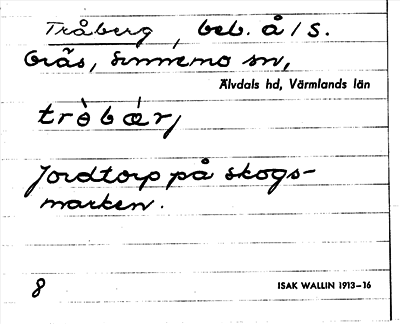 Tråberg, beb. å / S.
Gräs, Sunnemo sn,
Älvdals hd, Värmlands län
trèbœ́r,
Jordtorp på skogs-
marken.
8
ISAK WALLIN 1913–16